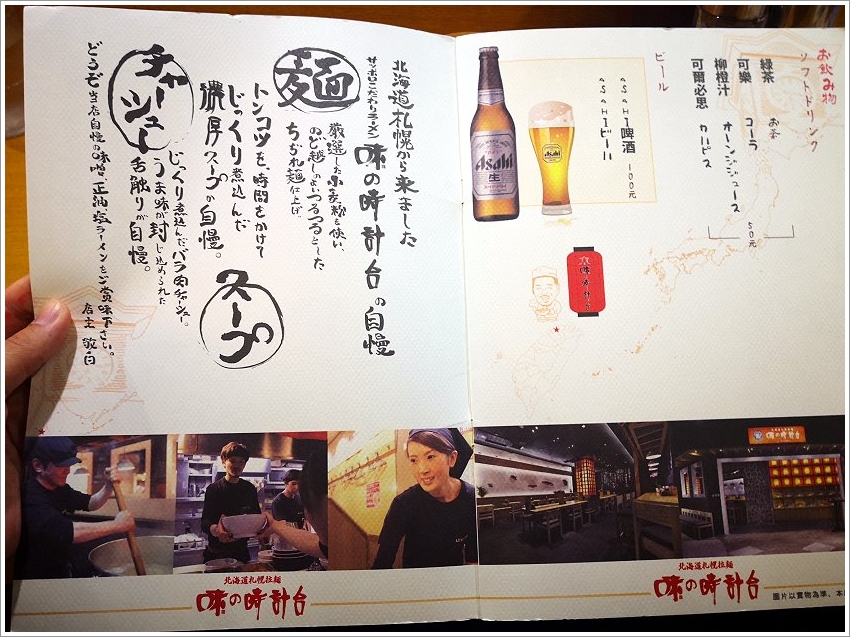 お飲み物
ソフトドリンク
緑茶 お茶
可樂 コーラ
柳橙汁 オーンジジュース
可爾必思 カルピス
50元
ビール
ASAHI啤酒 100元
ASAHIビール
Asahi
生
Asahi
北海道札幌から来ました
味の時計台の自慢
麺
サッポロこだわりラーメン
厳選した小麦粉を使い、
のど越しのよいつるつるとした
ちぢれ麺仕上げ
スープ
トンコツを、時間をかけて
じっくり煮込んだ
濃厚スープが自慢。
チャーシュー
じっくり煮込んだバラ肉チャーシュー。
うま味が封じ込められた
舌触りが自慢。
どうぞ当店自慢の味噌、正油、塩ラーメンをご賞味下さい。
店主 敬白
味の時計台
北海道札幌拉麺
味の時計台
北海道札幌拉麺
味の時計台
圖片以實物為準、本